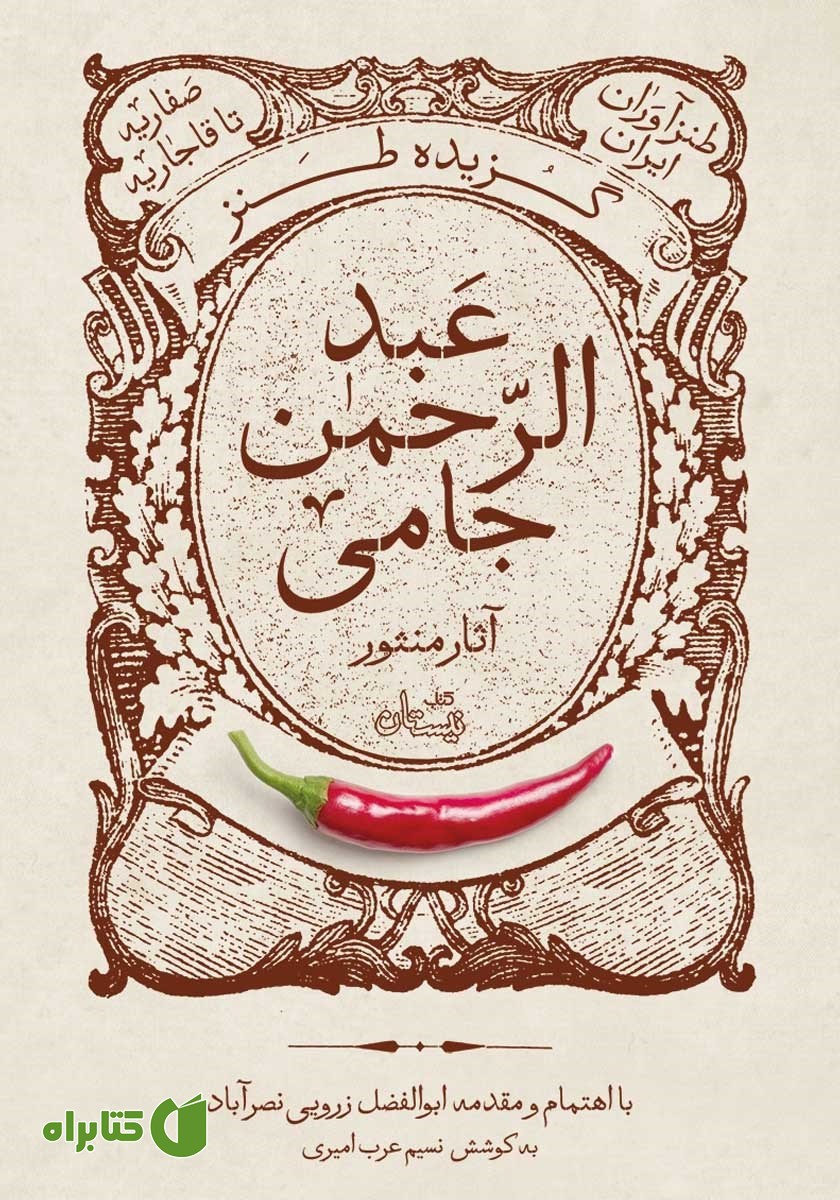 طنزآوران
ایران
صَفاریه
تا قاجاریه
گُزیده طَنز
عَبد
الرّحمٰن
جامی
آثار منثور
کتاب
نیستان
با اهتمام و مقدمه ابوالفضل زرویی نصرآباد
به کوشش نسیم عرب امیری
کتابراه